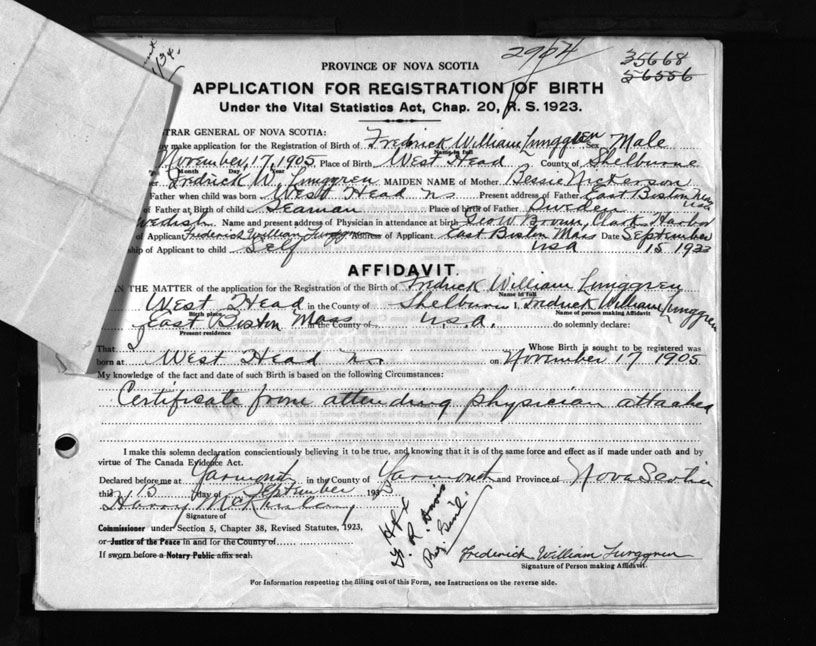 2964
35668
56556
PROVINCE OF NOVA SCOTIA
APPLICATION FOR REGISTRATION OF BIRTH
Under the Vital Statistics Act, Chap. 20, R. S. 1923.
TRAR GENERAL OF NOVA SCOTIA:
make application for the Registration of Birth of Fredrick William Lunggren Sex Male
Name in full
November 17, 1905 Place of Birth West Head County of Shelburne
Month Day Year
Fredrick W. Lunggren MAIDEN NAME of Mother Bessie Nickerson
Father when child was born West Head N.S. Present address of Father East Boston Mass
of Father at Birth of child Seaman Place of birth of Father Sweden
Swedish Name and present address of Physician in attendance at birth Geo W. Brown, Clark Harbor
of Applicant Frederick William Lunggren Address of Applicant East Boston Mass Date September
ship of Applicant to child Self USA 15 1933
AFFIDAVIT.
IN THE MATTER of the application for the Registration of the Birth of Fredrick William Lunggren
Name in full
West Head in the County of Shelburne I, Fredrick William Lunggren
Birth place Name of person making Affidavit
East Boston Mass in the County of U.S.A. do solemnly declare:
Present residence
That Whose Birth is sought to be registered was
born at West Head N.S. on November 17 1905
My knowledge of the fact and date of such Birth is based on the following Circumstances:
Certificate from attending physician attached
I make this solemn declaration conscientiously believing it to be true, and knowing that it is of the same force and effect as if made under oath and by
virtue of The Canada Evidence Act.
Declared before me at Yarmouth in the County of Yarmouth and Province of Nova Scotia
this 15 day of September 1933
Harry
Signature of
Commissioner under Section 5, Chapter 38, Revised Statutes, 1923,
or Justice of the Peace in and for the County of
If sworn before a Notary Public affix seal:
Frederick William Lunggren
Signature of Person making Affidavit.
For Information respecting the filling out of this Form, see Instructions on the reverse side.